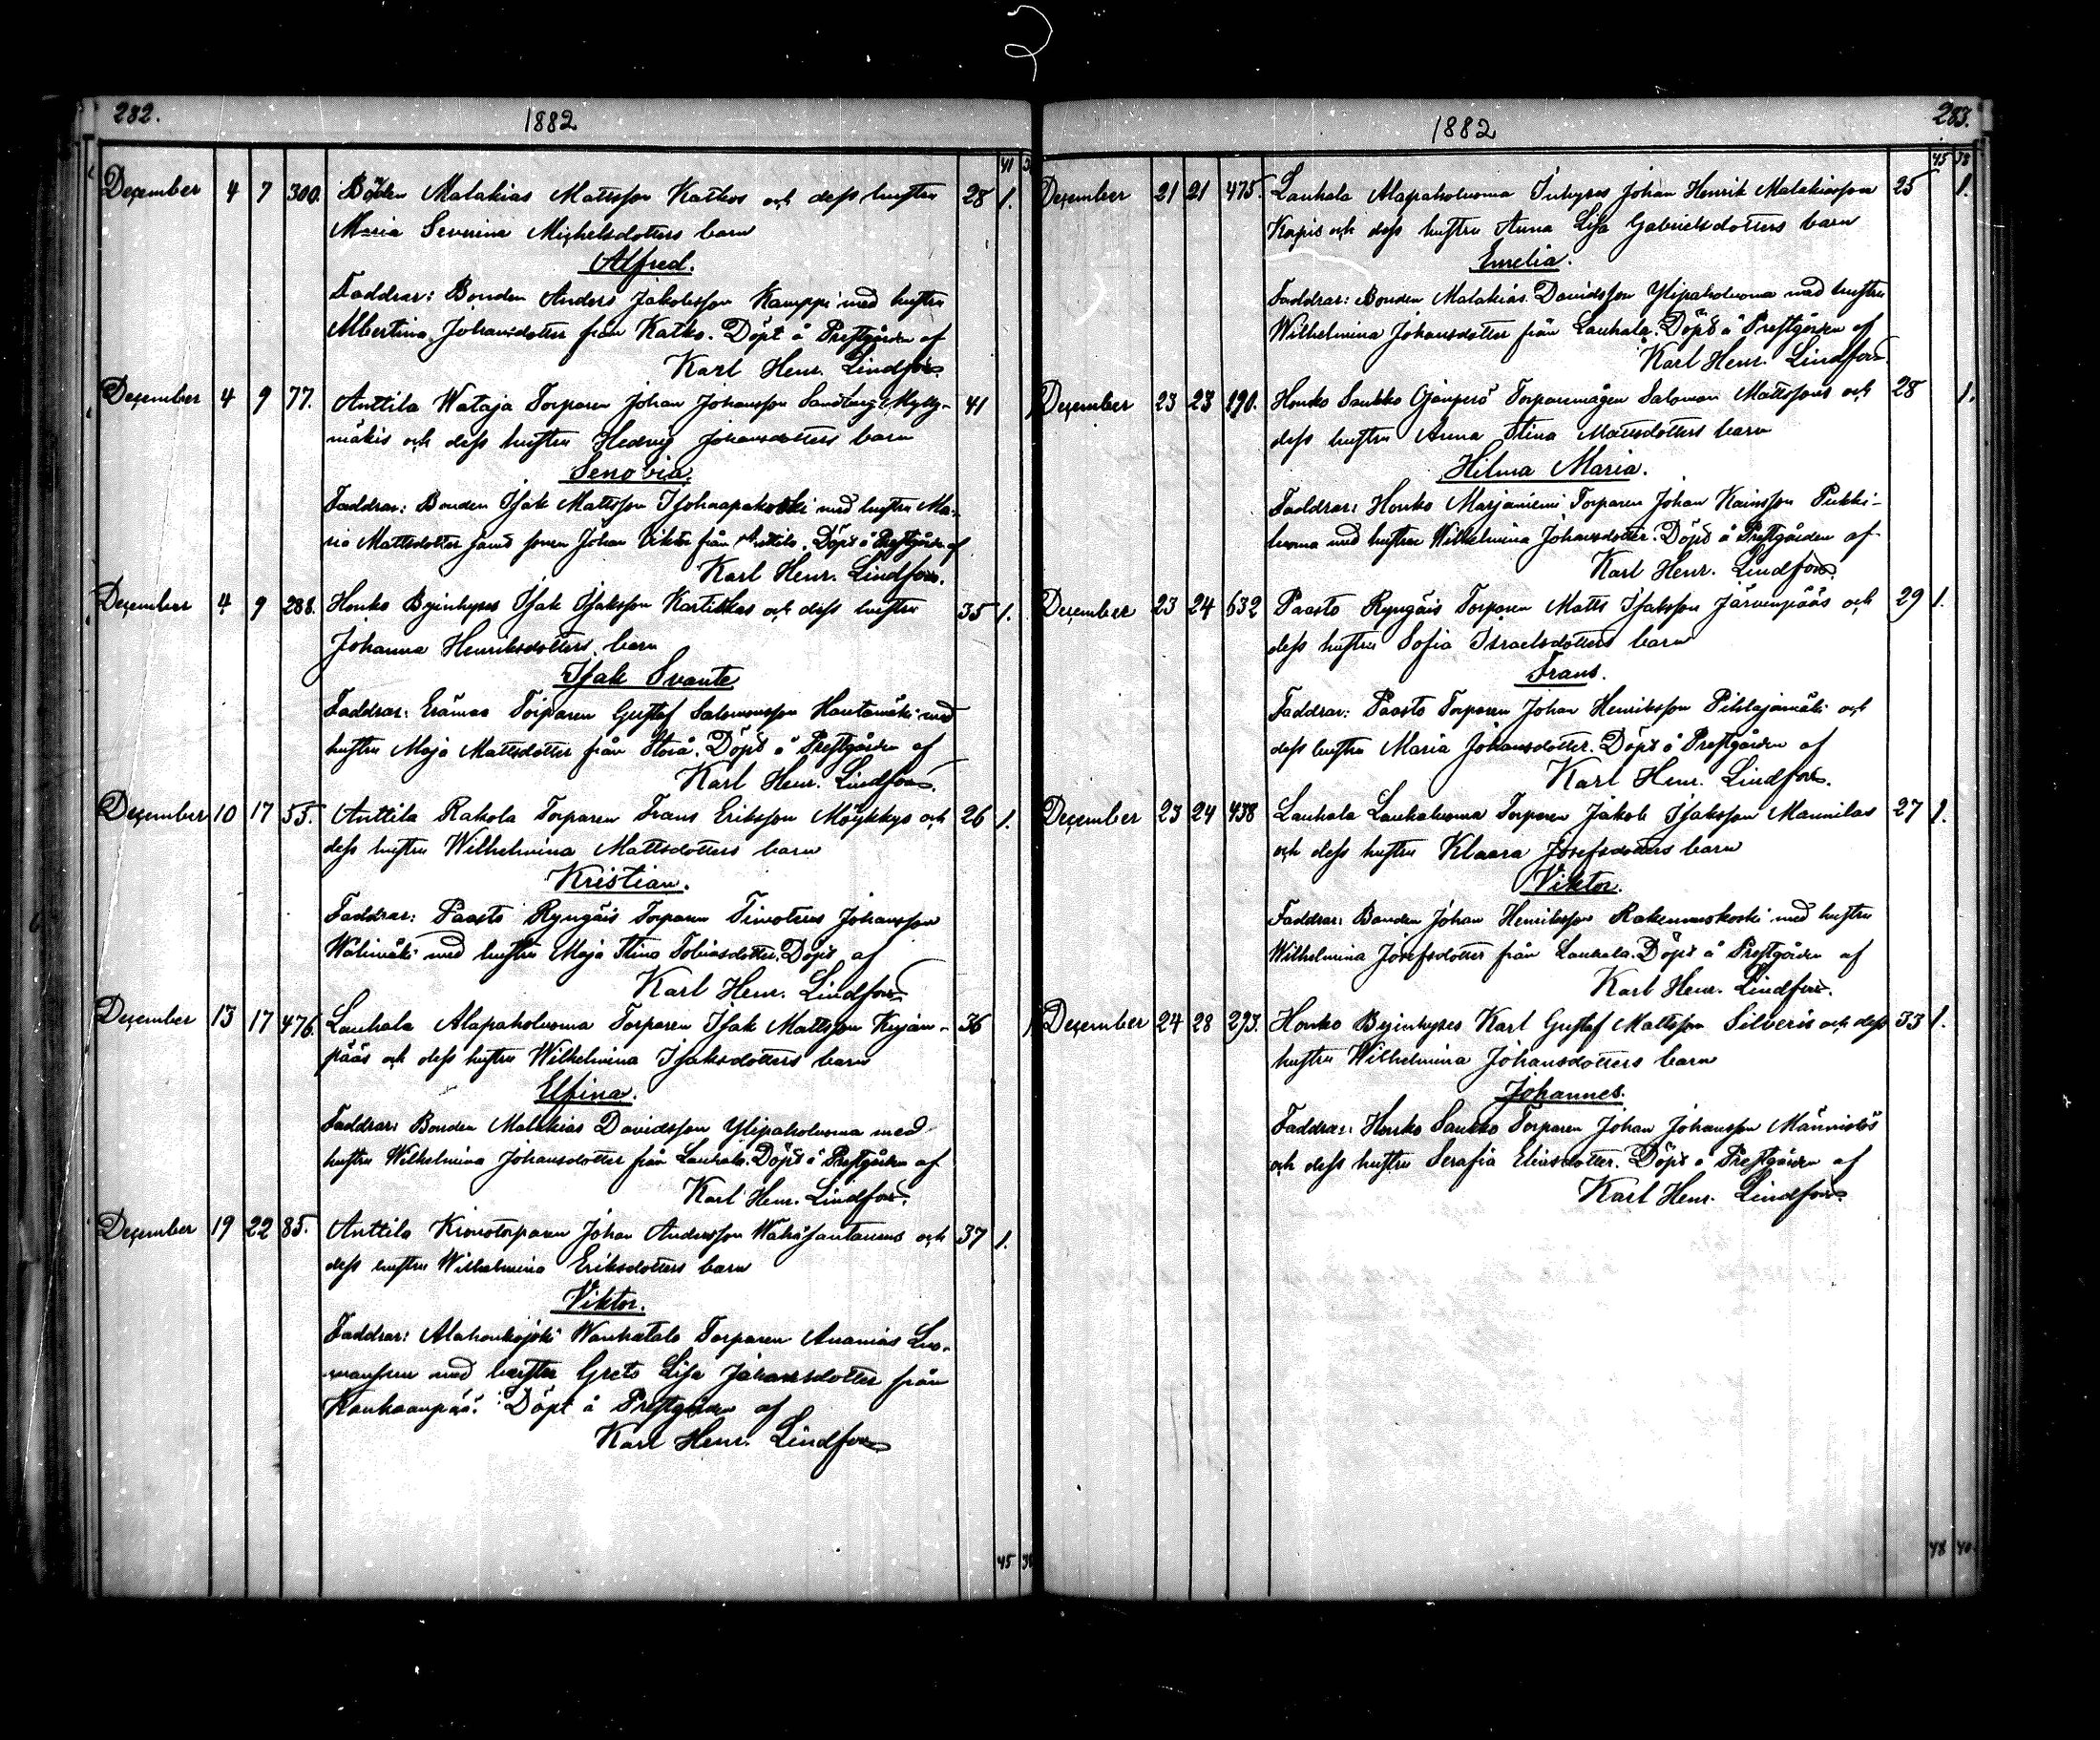 282.
1882
41
December 4 7 300. Bonden Malakias Mattsson Katkos och dess hustru 28 1.
Maria Severina Michelsdotters barn
Alfred.
Faddrar: Bonden Anders Jakobsson Kamppi med hustru
Albertina Johansdotter från Katko. Döpt å Prestgården af
Karl Henr. Lindfors.
December 4 9 77. Anttila Wataja Torparen Johan Johansson Sandberg Mylly- 41
mäkis och dess hustru Hedvig Johansdotters barn
Senobia.
Faddrar: Bonden Isak Mattsson Isohaapakoski med hustru Ma-
ria Mattsdotter samt sonen Johan Viktor från Anttila. Döpt å Prestgården af
Karl Henr. Lindfors.
December 4 9 288. Honko Byinhyses Isak Isaksson Kortiskas och dess hustru 35 1.
Johanna Henriksdotters barn
Isak Svante
Faddrar: Erämaa Torparen Gustaf Salomonsson Hautamäki med
hustru Maja Mattsdotter från Storå. Döpt å Prestgården af
Karl Henr. Lindfors.
December 10 17 55. Anttila Rahola Torparen Frans Eriksson Möykkys och 26 1.
dess hustru Wilhelmina Mattsdotters barn
Kristian.
Faddrar: Paasto Ryngäis Torparen Timoteus Johansson
Wälimäki med hustru Maja Stina Tobiasdotter. Döpt af
Karl Henr. Lindfors
December 13 17 476. Lauhala Alapaholuoma Torparen Isak Mattsson Kujan- 36
pääs och dess hustru Wilhelmina Isaksdotters barn
Elfina.
Faddrar: Bonden Malakias Davidsson Ylipaholuoma med
hustru Wilhelmina Johansdotter från Lauhala. Döpt å Prestgården af
Karl Henr. Lindfors.
December 19 22 85. Anttila Kronotorparen Johan Andersson Wähäsantanens och 37 1.
dess hustru Wilhelmina Eriksdotters barn
Viktor.
Faddrar: Alahonkajoki Wanhatalo Torparen Ananias
med hustru Greta Lisa Johansdotter från
Kankaanpää. Döpt å Prestgården af
Karl Henr. Lindfors
45
283.
1882
45 38
December 21 21 475. Lauhala Alapaholuoma Inhyses Johan Henrik Malakiasson 25 1.
och dess hustru Anna Lisa Gabrielsdotters barn
Emelia.
Faddrar: Bonden Malakias Davidsson Ylipaholuoma med hustru
Wilhelmina Johansdotter från Lauhala. Döpt å Prestgården af
Karl Henr. Lindfors
December 23 23 190. Honko Saukko Ojanperä Torparemågen Salomon Mattssons och 28 1.
dess hustru Anna Stina Mattsdotters barn
Hilma Maria.
Faddrar: Honko Marjaniemi Torparen Johan Pukki-
luoma med hustru Wilhelmina Johansdotter. Döpt å Prestgården af
Karl Henr. Lindfors.
December 23 24 632 Paasto Ryngäis Torparen Matts Isaksson Järvenpääs och 29 1.
dess hustru Sofia Israelsdotters barn
Frans.
Faddrar: Paasto Torparen Johan Henriksson Pihlajamäki och
dess hustru Maria Johansdotter. Döpt å Prestgården af
Karl Henr. Lindfors.
December 23 24 438 Lauhala Lauhaluoma Torparen Jakob Isaksson Mannilas 27 1.
och dess hustru Klaara Josefsdotters barn
Viktor.
Faddrar: Bonden Johan Henriksson Rakennuskoski med hustru
Wilhelmina Josefsdotter från Lauhala. Döpt å Prestgården af
Karl Henr. Lindfors.
December 24 28 293. Honko Byinhyses Karl Gustaf Mattsson Silveris och dess 33 1.
hustru Wilhelmina Johansdotters barn
Johannes.
Faddrar: Honko Saukko Torparen Johan Johansson Männistös
och dess hustru Serafia Eliasdotter. Döpt å Prestgården af
Karl Henr. Lindfors
48 40.